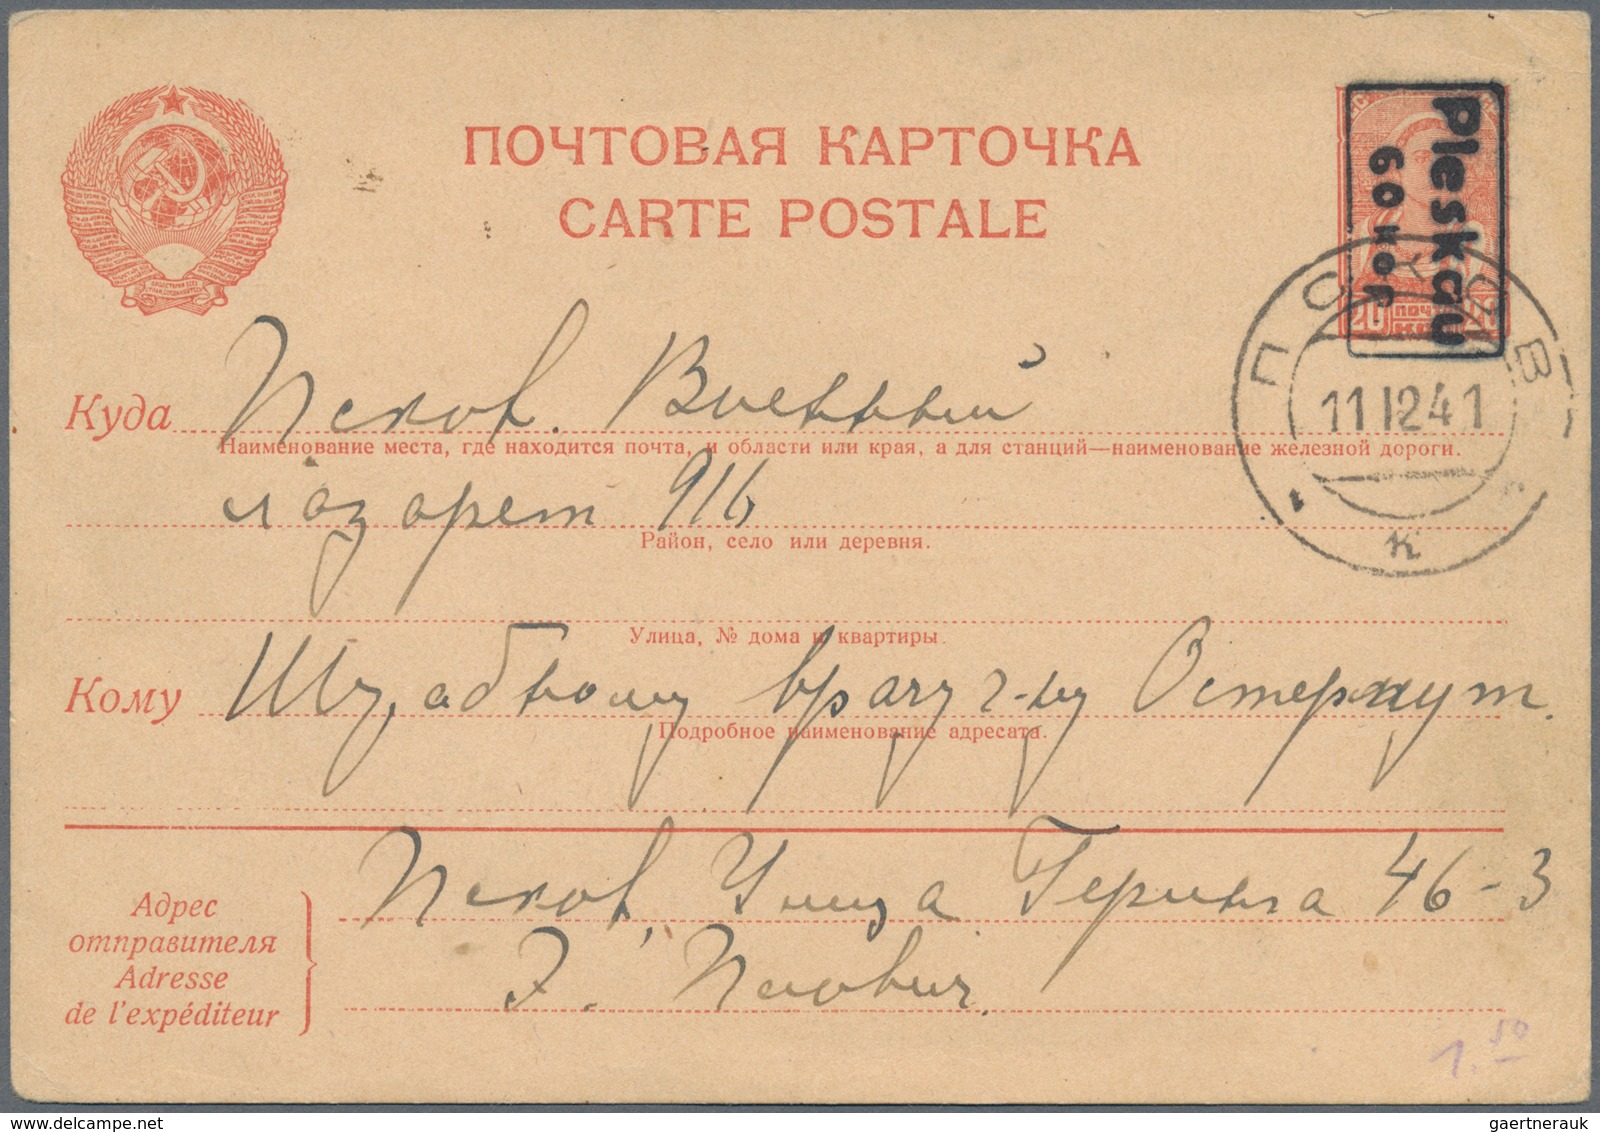 ПОЧТОВАЯ КАРТОЧКА
CARTE POSTALE
Pleskau
60 коп
20 ПОЧТ
ПСКОВ
11 12 41
к
Куда Псков. Военный
Наименование места, где находится почта, и области или края, а для станций—наименование железной дороги.
лазарет 916
Район, село или деревня.
Улица, № дома и квартиры.
Кому Штабному врачу г-ну
Подробное наименование адресата.
Псков, Улица Геринга 46-3
Адрес
отправителя
Adresse
de l'expéditeur
Э.
1.50
gaertnerauk